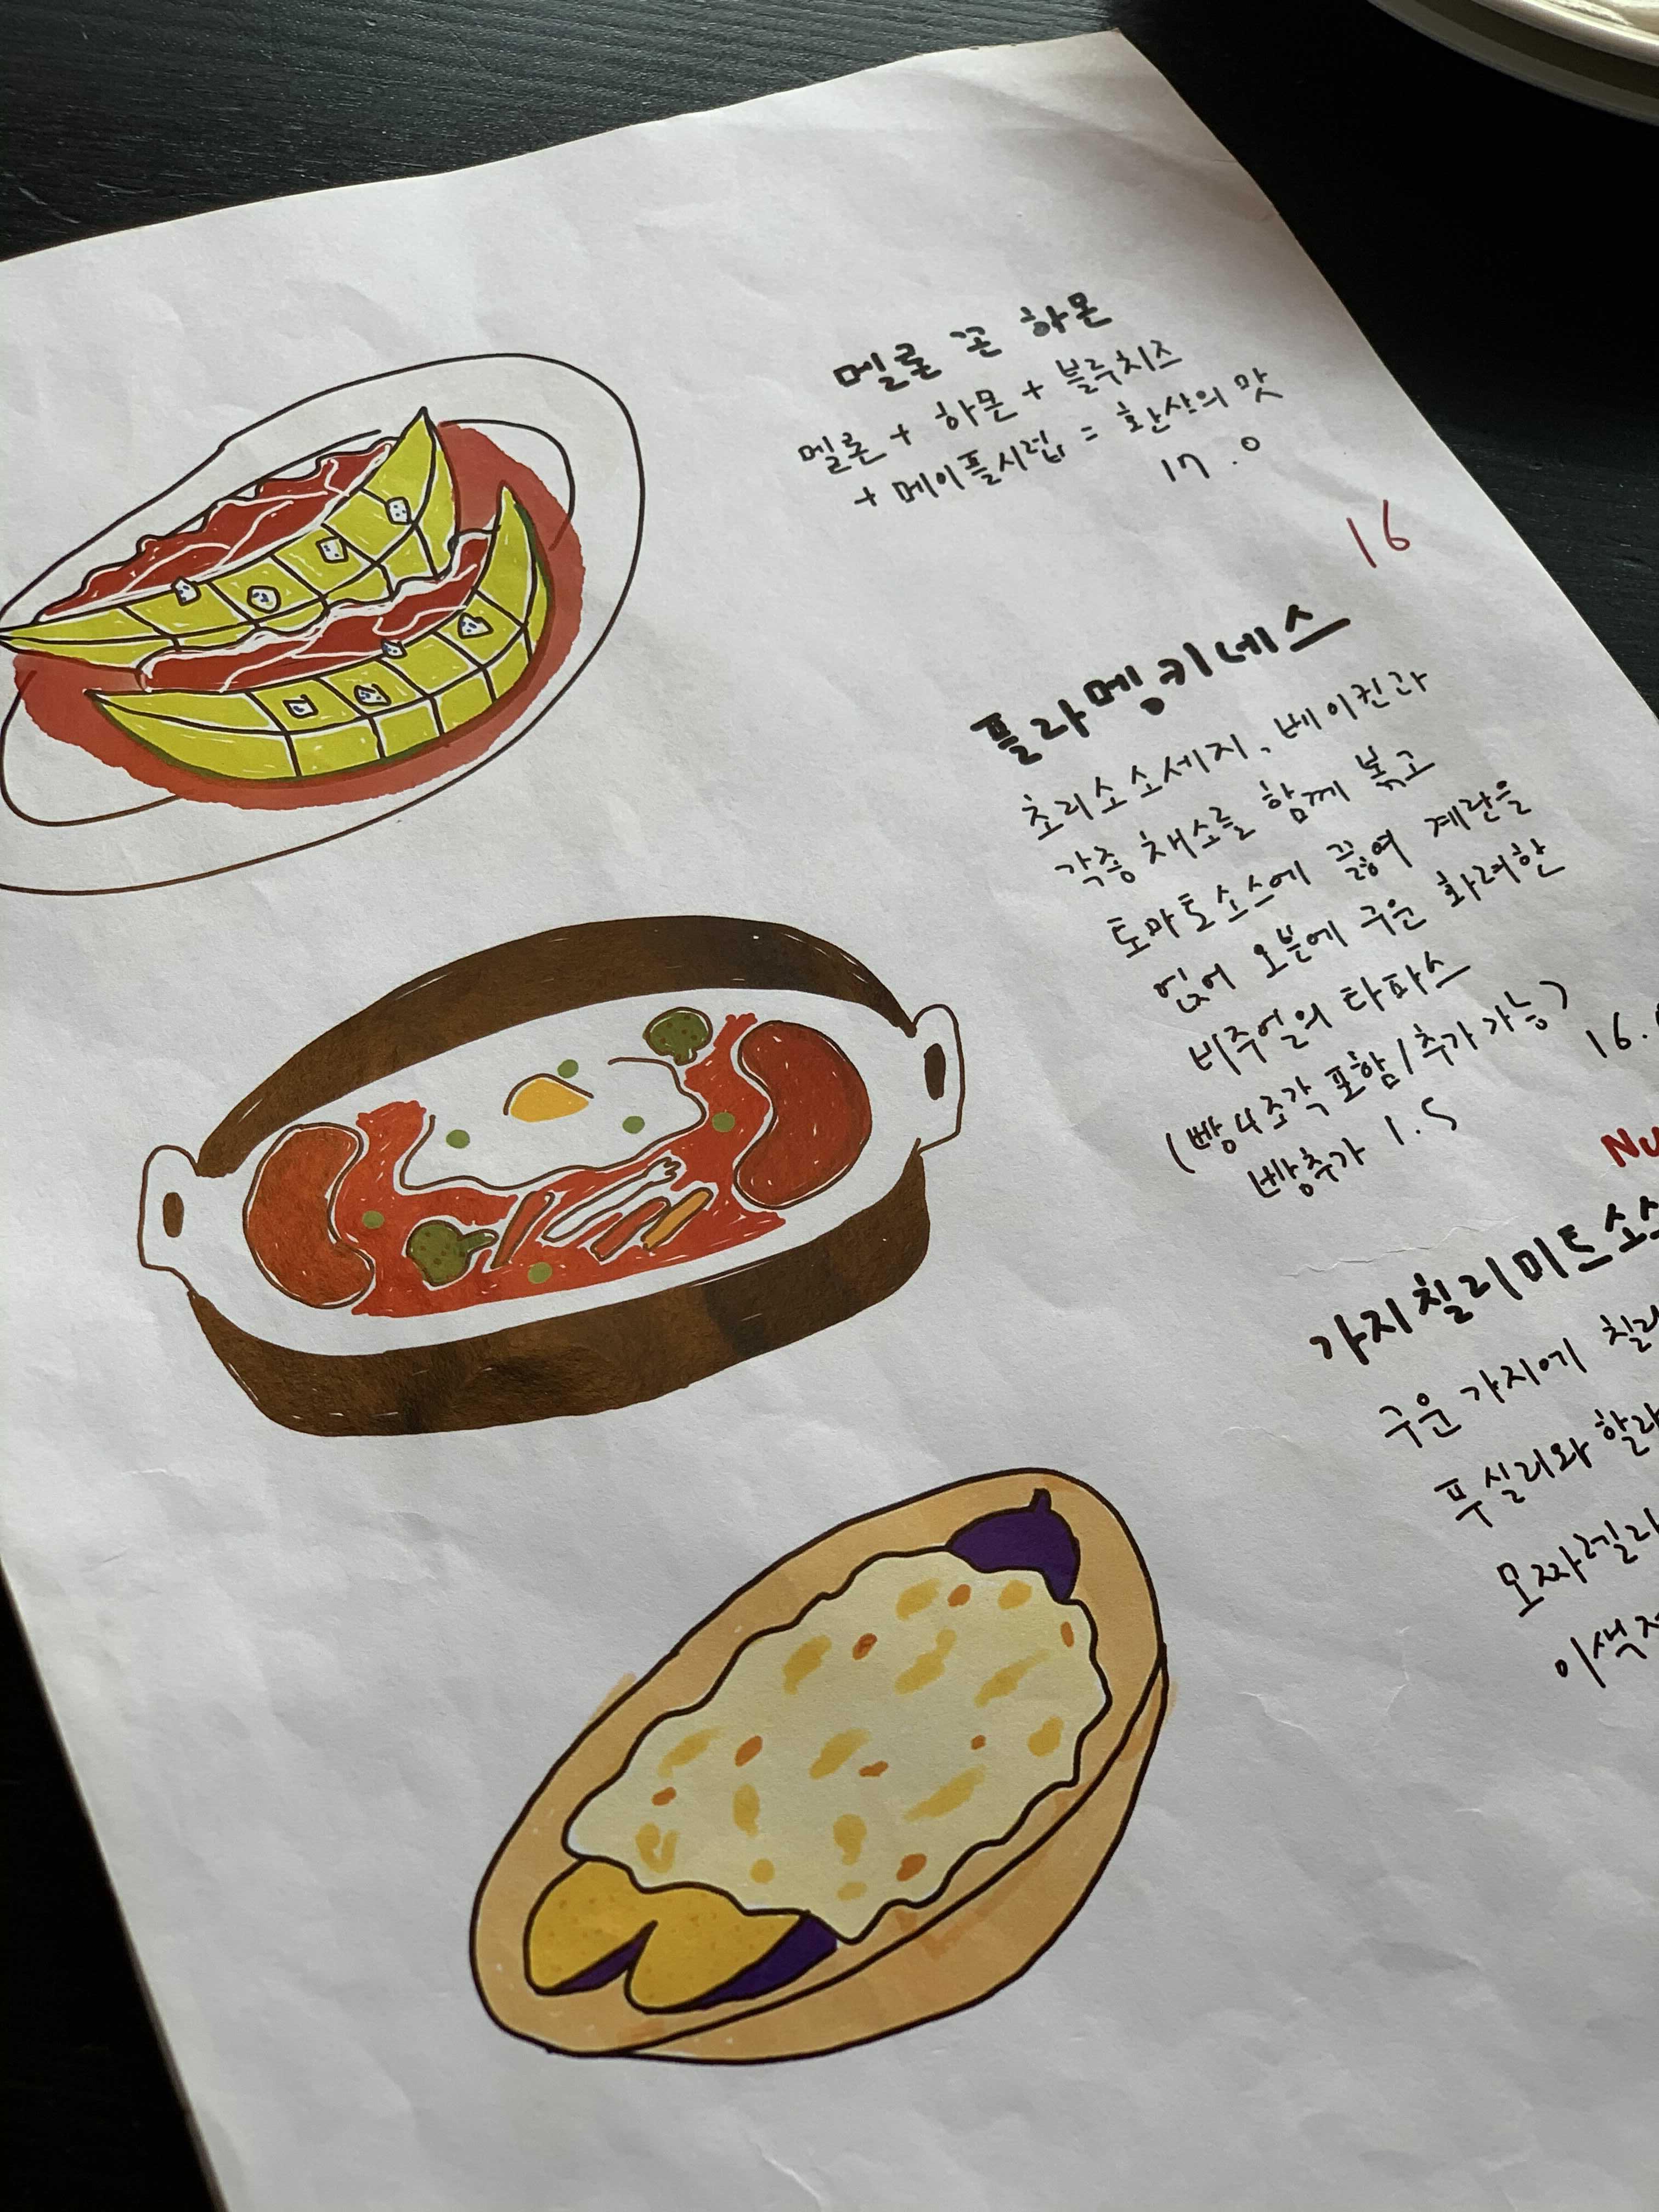 멜론 꼰 하몬
멜론 + 하몬 + 블루치즈
+ 메이플시럽 = 환상의 맛
17.0
16
플라멩키네스
초리소소세지, 베이컨과
각종 채소를 함께 볶고
토마토소스에 끓여 계란을
얹어 오븐에 구운 화려한
비주얼의 타파스
(빵4조각 포함/추가 가능)
16.
빵추가 1.5
가지칠리미트소스
구운 가지에 칠리
푸실리와 할라
모짜렐라
이색적